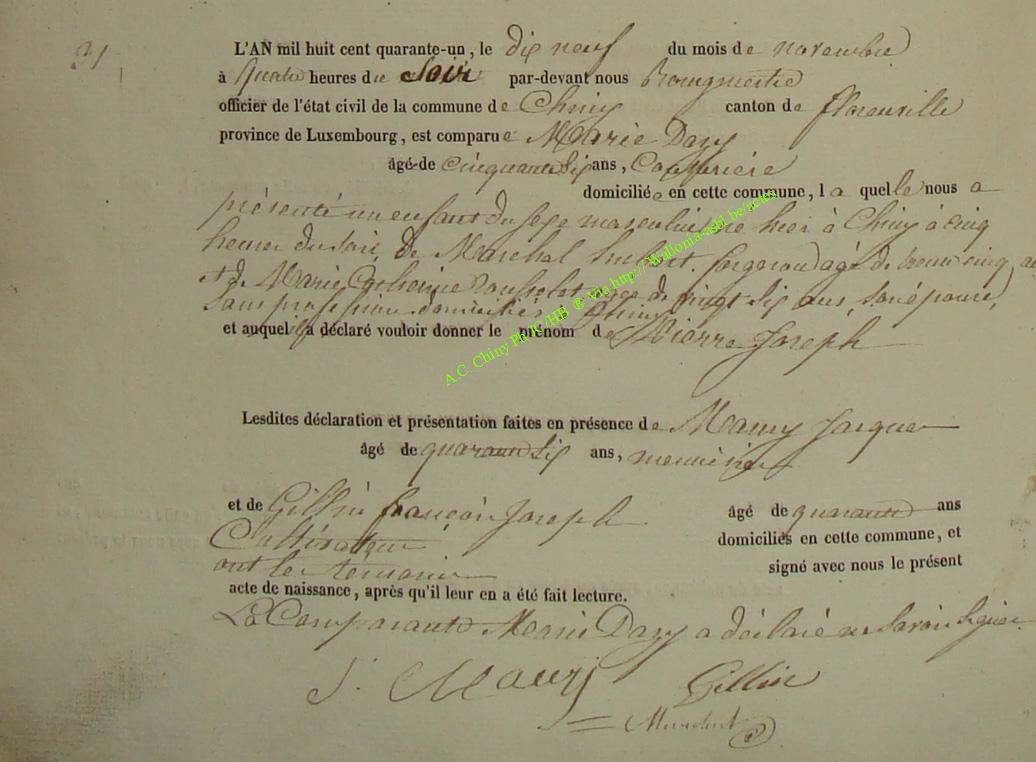 31
L'AN mil huit cent quarante-un, le dix neuf du mois de novembre
à Quatre heures du Soir par-devant nous Bourgmestre
officier de l'état civil de la commune de Chiny canton de florenville
province de Luxembourg, est comparue Marie Dazy
âgé de cinquante Six ans, Couturière
domiciliée en cette commune, la quelle nous a
présenté un enfant du sexe masculin né hier à Chiny à cinq
heures du soir, de Marechal hubert, forgeron agé de trente cinq
et de Marie Catherine Rousselet agée de vingt Six ans, son épouse,
Sans profession domiciliés à Chiny
et auquel a déclaré vouloir donner le prénom de Pierre Joseph
Lesdites déclaration et présentation faites en présence de Maury Jacques
âgé de quarante Six ans, meunier
et de Gillin françois Joseph âgé de quarante ans
Cultivateur domiciliés en cette commune, et
ont les témoins signé avec nous le présent
acte de naissance, après qu'il leur en a été fait lecture.
La Comparante Marie Dazy a déclaré ne savoir Signer
J. Maury Gillin
A.C. Chiny PR/C/HB ® Via http://Walloma-asbl.be/actes